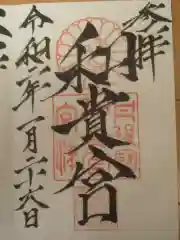 参拝
和貴宮
令和二年一月二十六日